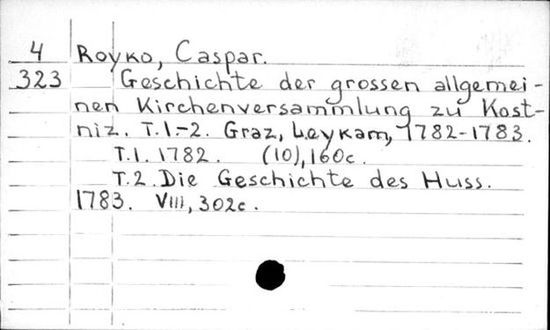 4 Royko, Caspar.
323 Geschichte der grossen allgemei-
nen Kirchenversammlung zu Kost-
niz. T.1.-2. Graz, Leykam, 1782-1783.
T.1. 1782. (10), 160c.
T.2. Die Geschichte des Huss.
1783. VIII, 302c.